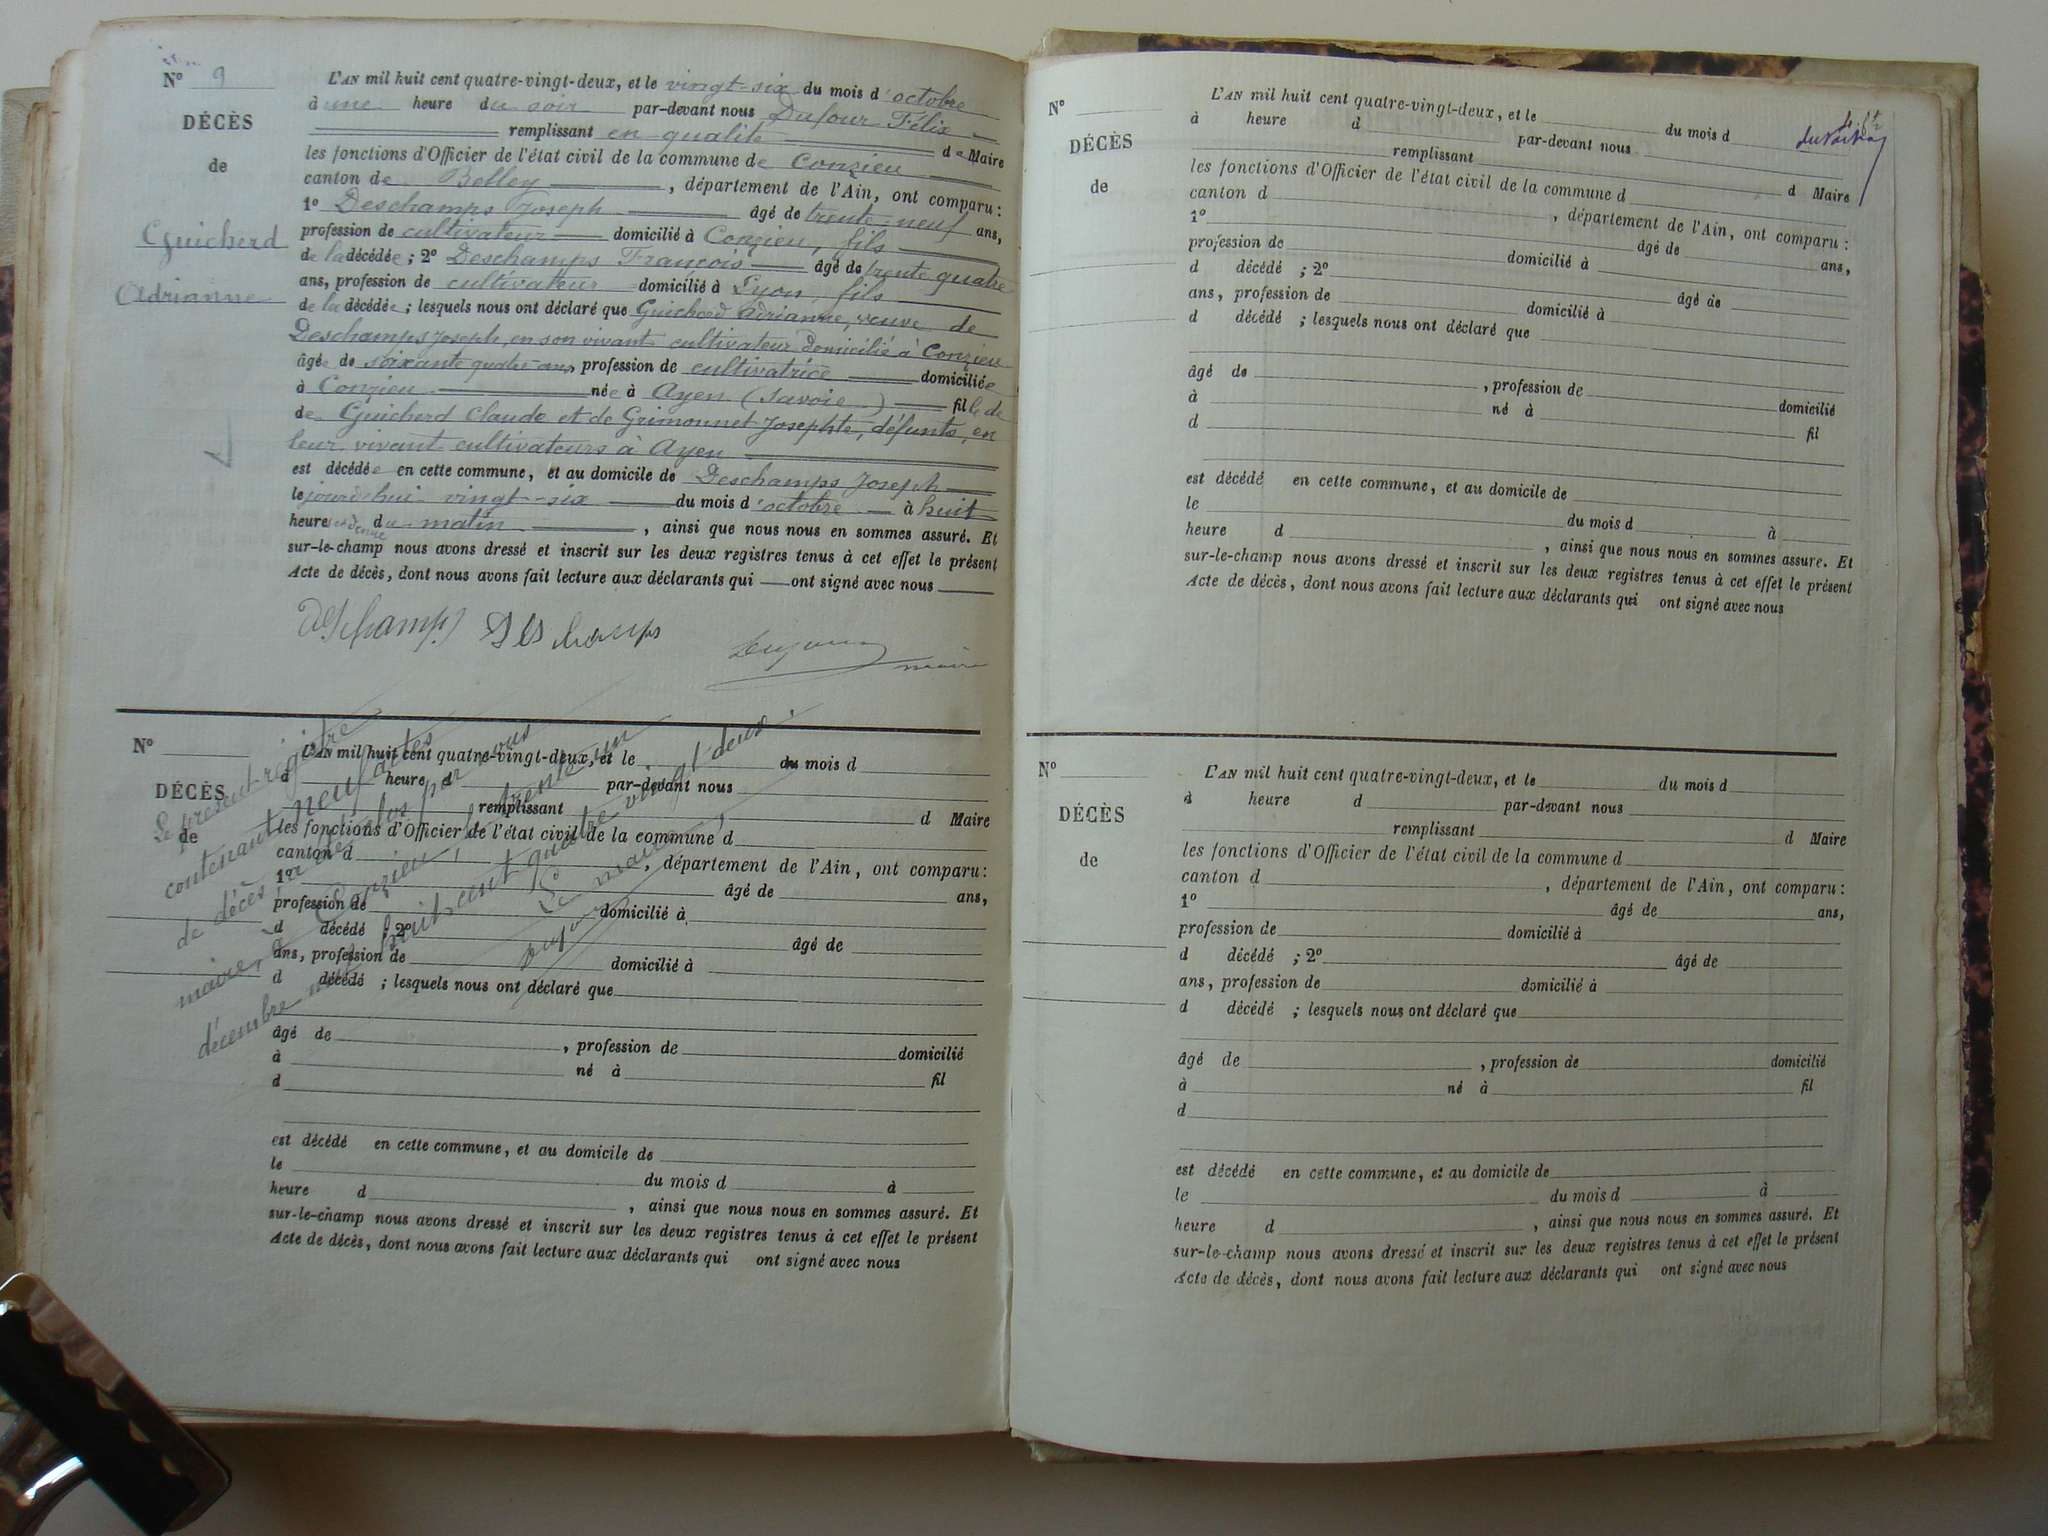 N° 9
DÉCÈS
de
Guicherd
Adrianne
L'AN mil huit cent quatre-vingt-deux, et le vingt-six du mois d'octobre
à une heure du soir par-devant nous Dufour Félix
remplissant en qualité de Maire
les fonctions d'Officier de l'état civil de la commune de Conzieu
canton de Belley, département de l'Ain, ont comparu :
1° Deschamps Joseph âgé de trente-neuf ans,
profession de cultivateur domicilié à Conzieu, fils
de la décédée ; 2° Deschamps François âgé de trente quatre
ans, profession de cultivateur domicilié à Lyon, fils
de la décédée ; lesquels nous ont déclaré que Guicherd Adrianne, veuve de
Deschamps Joseph, en son vivant cultivateur domicilié à Conzieu
âgée de soixante quatre ans, profession de cultivatrice domiciliée
à Conzieu née à Ayen (Savoie) fille de
de Guicherd Claude et de Grimonnet Josephte, défunts, en
leur vivant cultivateurs à Ayen
est décédée en cette commune, et au domicile de Deschamps Joseph
le jourd'hui vingt-six du mois d'octobre à huit
heures et demie du matin, ainsi que nous nous en sommes assuré. Et
sur-le-champ nous avons dressé et inscrit sur les deux registres tenus à cet effet le présent
Acte de décès, dont nous avons fait lecture aux déclarants qui ont signé avec nous
Deschamps Deschamps Dufour
maire
N°
DÉCÈS
de
L'AN mil huit cent quatre-vingt-deux, et le du mois d
à heure d par-devant nous
remplissant d Maire
les fonctions d'Officier de l'état civil de la commune d
canton d , département de l'Ain, ont comparu :
1° âgé de ans,
profession de domicilié à
d décédé ; 2° âgé de
ans, profession de domicilié à
d décédé ; lesquels nous ont déclaré que
âgé de , profession de domicilié
à né à fil
d
est décédé en cette commune, et au domicile de
le du mois d à
heure d , ainsi que nous nous en sommes assuré. Et
sur-le-champ nous avons dressé et inscrit sur les deux registres tenus à cet effet le présent
Acte de décès, dont nous avons fait lecture aux déclarants qui ont signé avec nous
Le présent registre
contenant neuf actes
de décès a été clos par nous
maire, à Conzieu, le trente un
décembre mil huit cent quatre vingt deux
Le maire,
Dufour
N°
DÉCÈS
de
L'AN mil huit cent quatre-vingt-deux, et le du mois d
à heure d par-devant nous
remplissant d Maire
les fonctions d'Officier de l'état civil de la commune d
canton d , département de l'Ain, ont comparu :
1° âgé de ans,
profession de domicilié à
d décédé ; 2° âgé de
ans, profession de domicilié à
d décédé ; lesquels nous ont déclaré que
âgé de , profession de domicilié
à né à
d fil
est décédé en cette commune, et au domicile de
le du mois d à
heure d , ainsi que nous nous en sommes assuré. Et
sur-le-champ nous avons dressé et inscrit sur les deux registres tenus à cet effet le présent
Acte de décès, dont nous avons fait lecture aux déclarants qui ont signé avec nous
N°
DÉCÈS
de
L'AN mil huit cent quatre-vingt-deux, et le du mois d
à heure d par-devant nous
remplissant d Maire
les fonctions d'Officier de l'état civil de la commune d
canton d , département de l'Ain, ont comparu :
1° âgé de ans,
profession de domicilié à
d décédé ; 2° âgé de
ans, profession de domicilié à
d décédé ; lesquels nous ont déclaré que
âgé de , profession de domicilié
à né à fil
d
est décédé en cette commune, et au domicile de
le du mois d à
heure d , ainsi que nous nous en sommes assuré. Et
sur-le-champ nous avons dressé et inscrit sur les deux registres tenus à cet effet le présent
Acte de décès, dont nous avons fait lecture aux déclarants qui ont signé avec nous